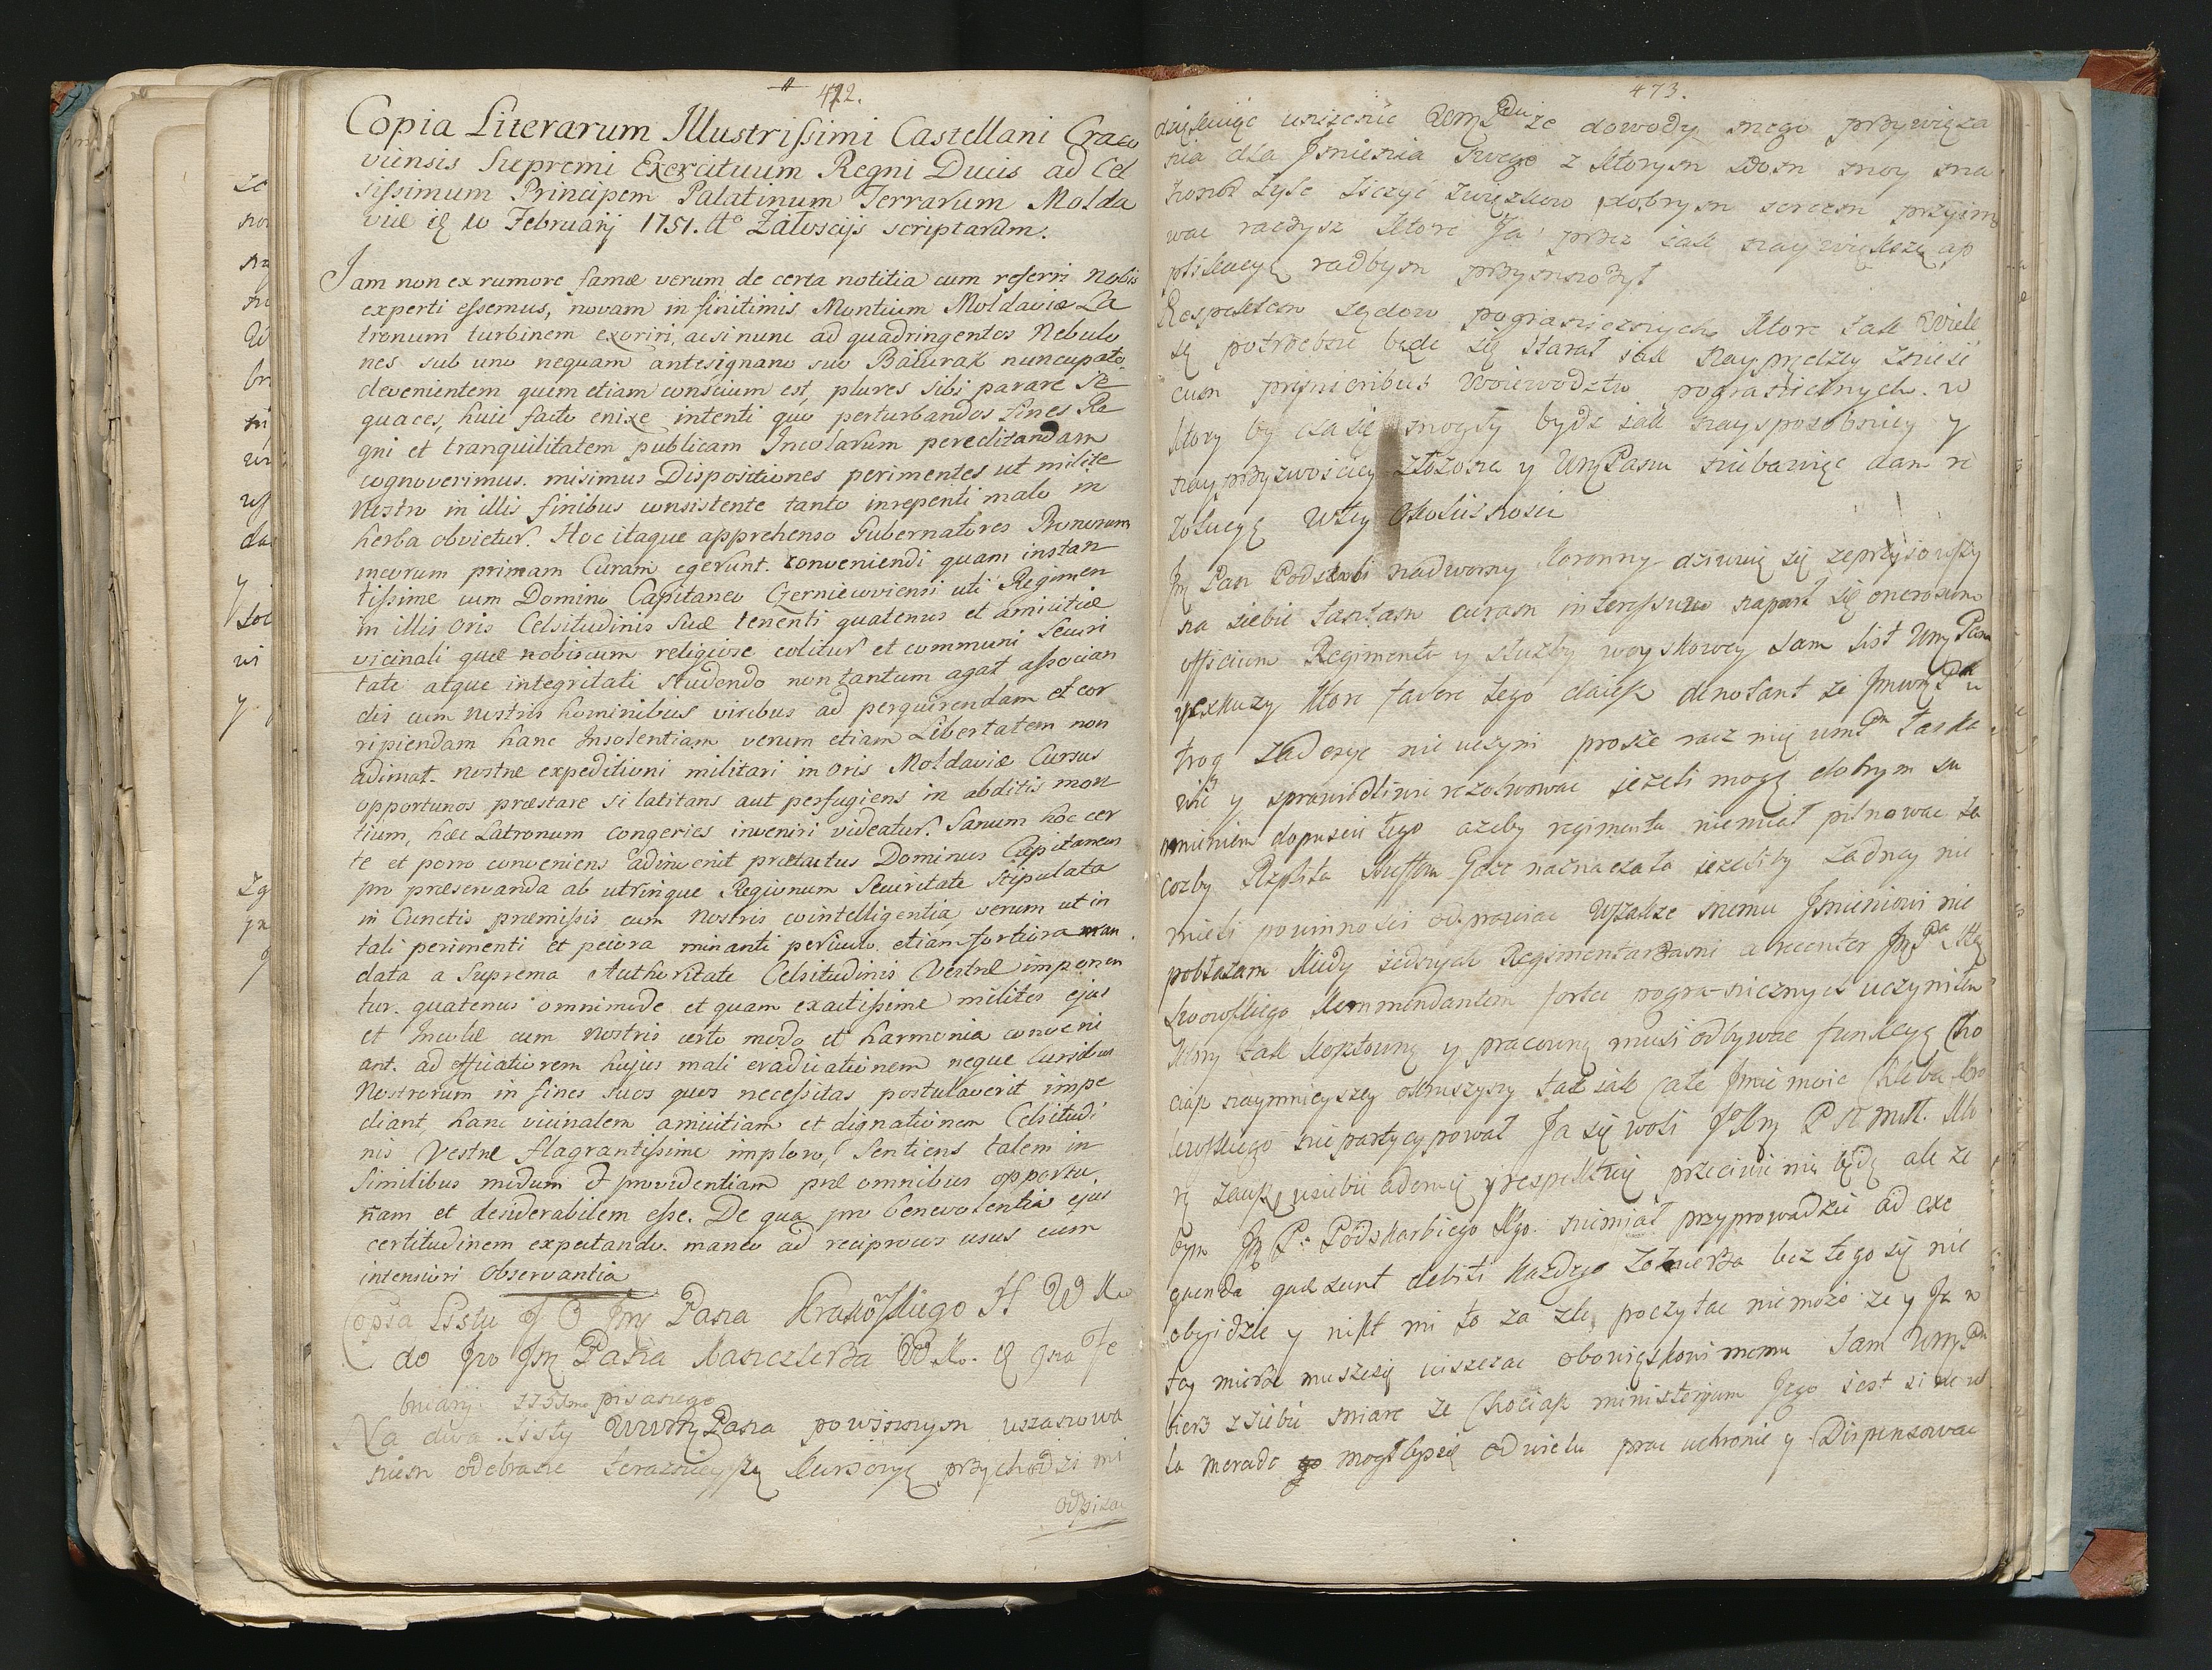 472.
Copia Literarum Illustrissimi Castellani Craco
viensis Supremi Exercituum Regni Ducis ad Cel
sissimum Principem Palatinum Terrarum Molda
viæ 10 Februarij 1751. Aº Załoscijs scriptarum.
Iam non ex rumore famæ verum de certa notitia cum referri Nobis
experti essemus, novam in finitimis Montium Moldaviæ La
tronum turbinem exoriri, acsi nunc ad quadringentos Nebulo
nes sub uno nequam antesignano suo Bałurak nuncupato
devenientem quim etiam conscium est, plures sibi parare se
quaces, huic facto enixe intenti quo perturbandos fines Re
gni et tranquilitatem publicam Incolarum pereclitandam
cognoverimus. misimus Dispositiones perimentes ut milite
Nostro in illis finibus consistente tanto inrepenti malo in
herba obvietur. Hoc itaque apprehenso Gubernatores Bonorum
meorum primam Curam egerunt. conveniendi quam instan
tissime cum Domino Capitaneo Czerniecoviensi uti Regimen
in illis oris Celsitudinis Suæ tenenti quatenus et amicitiæ
vicinali quæ nobiscum religiose colitur et communi Securi
tati atque integritati studendo non tantum agat associan
dis cum nostris hominibus viribus ad perquirendam et cor
ripiendam hanc Insolentiam verum etiam Libertatem non
adimat. nostræ expeditioni militari in oris Moldaviæ Cursus
opportunos præstare si latitans aut perfugiens in abditis mon
tium, hæc Latronum congeries inveniri videatur. Sanum hoc cer
te et porro conveniens adinvenit prætactus Dominus Capitaneus
pro præservanda ab utrinque Regionum Securitate Stipulata
in Cunctis præmissis cum Nostris cointelligentia, verum ut in
tali perimenti et peiora minanti periculo, etiam fortiora man
data a Suprema Authoritate Celsitudinis Vestræ imponan
tur. quatenus omnimode et quam exactissime milites ejus
et Incolæ cum Nostris certo modo et harmonia conveni
ant. ad efficatiorem hujus mali eradicationem neque Cursibus
Nostrorum in fines suos quos necessitas postulaverit impe
diant, hanc vicinalem amicitiam et dignationem Celsitudi
nis Vestræ flagrantissime imploro, Sentiens talem in
Similibus modum et providentiam præ omnibus opportu
nam et desiderabilem esse. De qua pro benevolentia ejus
certitudinem expectando. maneo ad reciprocos usus cum
intensiori Observantia
Copia Listu J O Jmć Pana Krakowskiego H W Ko
do Jmć Pana Kanclerza W. Ko. Fe
bruarij. 1751mo pisanego
Na dwa Listy WWMći Pana powinnym uszanowa
niem odebrane teraznieyszą Kursoryą przychodzi mi
odpisac
473.
dziękuięc unizenie WmPanu ze dowody mego przywięza
nia dla Jmienia Swego z ktorym dom moy ma
honor tyle liczyć związkow dobrym sercem przyimo
wac raczysz ktore Ja przez iak naywiększą ap
plikacyę radbym przymnożył
Respektem sądow pogranicznych ktore tak wiele
są potrzebne będę się starał iak nayprędzey znieść
cum prioribus Woiewodztw pogranicznych. w
ktory by czasie mogły bydz iak naysposobniey y
nayprzyzwoiciey złożone y WmPanu niebawięc dam re
zolucyę wtey Okolicznosci
Jmć Pan Podskarbi nadworny Koronny dziwuię się zeprzyiowszy
na siebie tantam curam interessów naparł się onerosum
officium Regimentu y służby woyskowey sam list WmPana
y exkuzy ktore favore tego
trog zadosyc nie uczyni prosze racz mię łaska
wie y sprawiedliwie rezolwowac jezeli mogę dobrym su
mnieniem dopuscic tego azeby regimentu niemiał pilnowac za
cozby Rzplita Gaze naznaczała iezeliby zadney nie
mieli powinnosci odprawiac Wszakże memu Jmieniowi nie
pobłażam Kiedy iednych Regimentarzami a recenter
Lwowskiego Kommendantem fortec pogranicznych uczyniłem
ktory tak kosztowną y pracowną musi odbywac funkcyę cho
ciaż naymnieyszey okruszyny tak iak całe Jmie moie Chleba Kro
lewskiego niepartycypował Ja się woli
rę zawsze usiebie adoruię y respektuię przeciwić nie będę ale ze
bym Jmć Pa Podskarbiego niemiał przyprowadzic ad exe
quenda quæ sunt debiti każdego Żołnierza bez tego się nie
obyidzie y nikt mi to za złe poczytac niemoże ze y Ja w
tey mierze muszesię uiszczac obowiązkowi memu Sam
bierz z siebie miarę ze Chociaż ministerium Jego iest
mogłbysię od wielu prac uchronic y Dispensowac